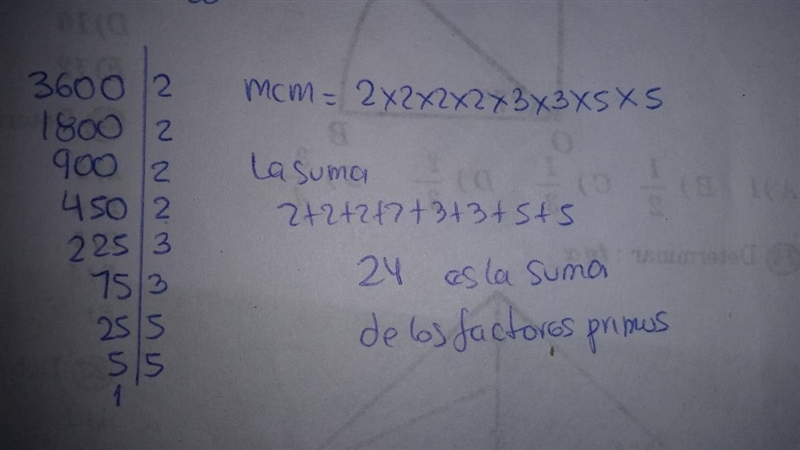 3600 | 2
1800 | 2
900 | 2
450 | 2
225 | 3
75 | 3
25 | 5
5 | 5
1
mcm = 2×2×2×2×3×3×5×5
La suma
2+2+2+2+3+3+5+5
24 es la suma
de los factores primos
D) 10
B
O
A) 1 B) 1/2 C) D)
Determinar: tg α